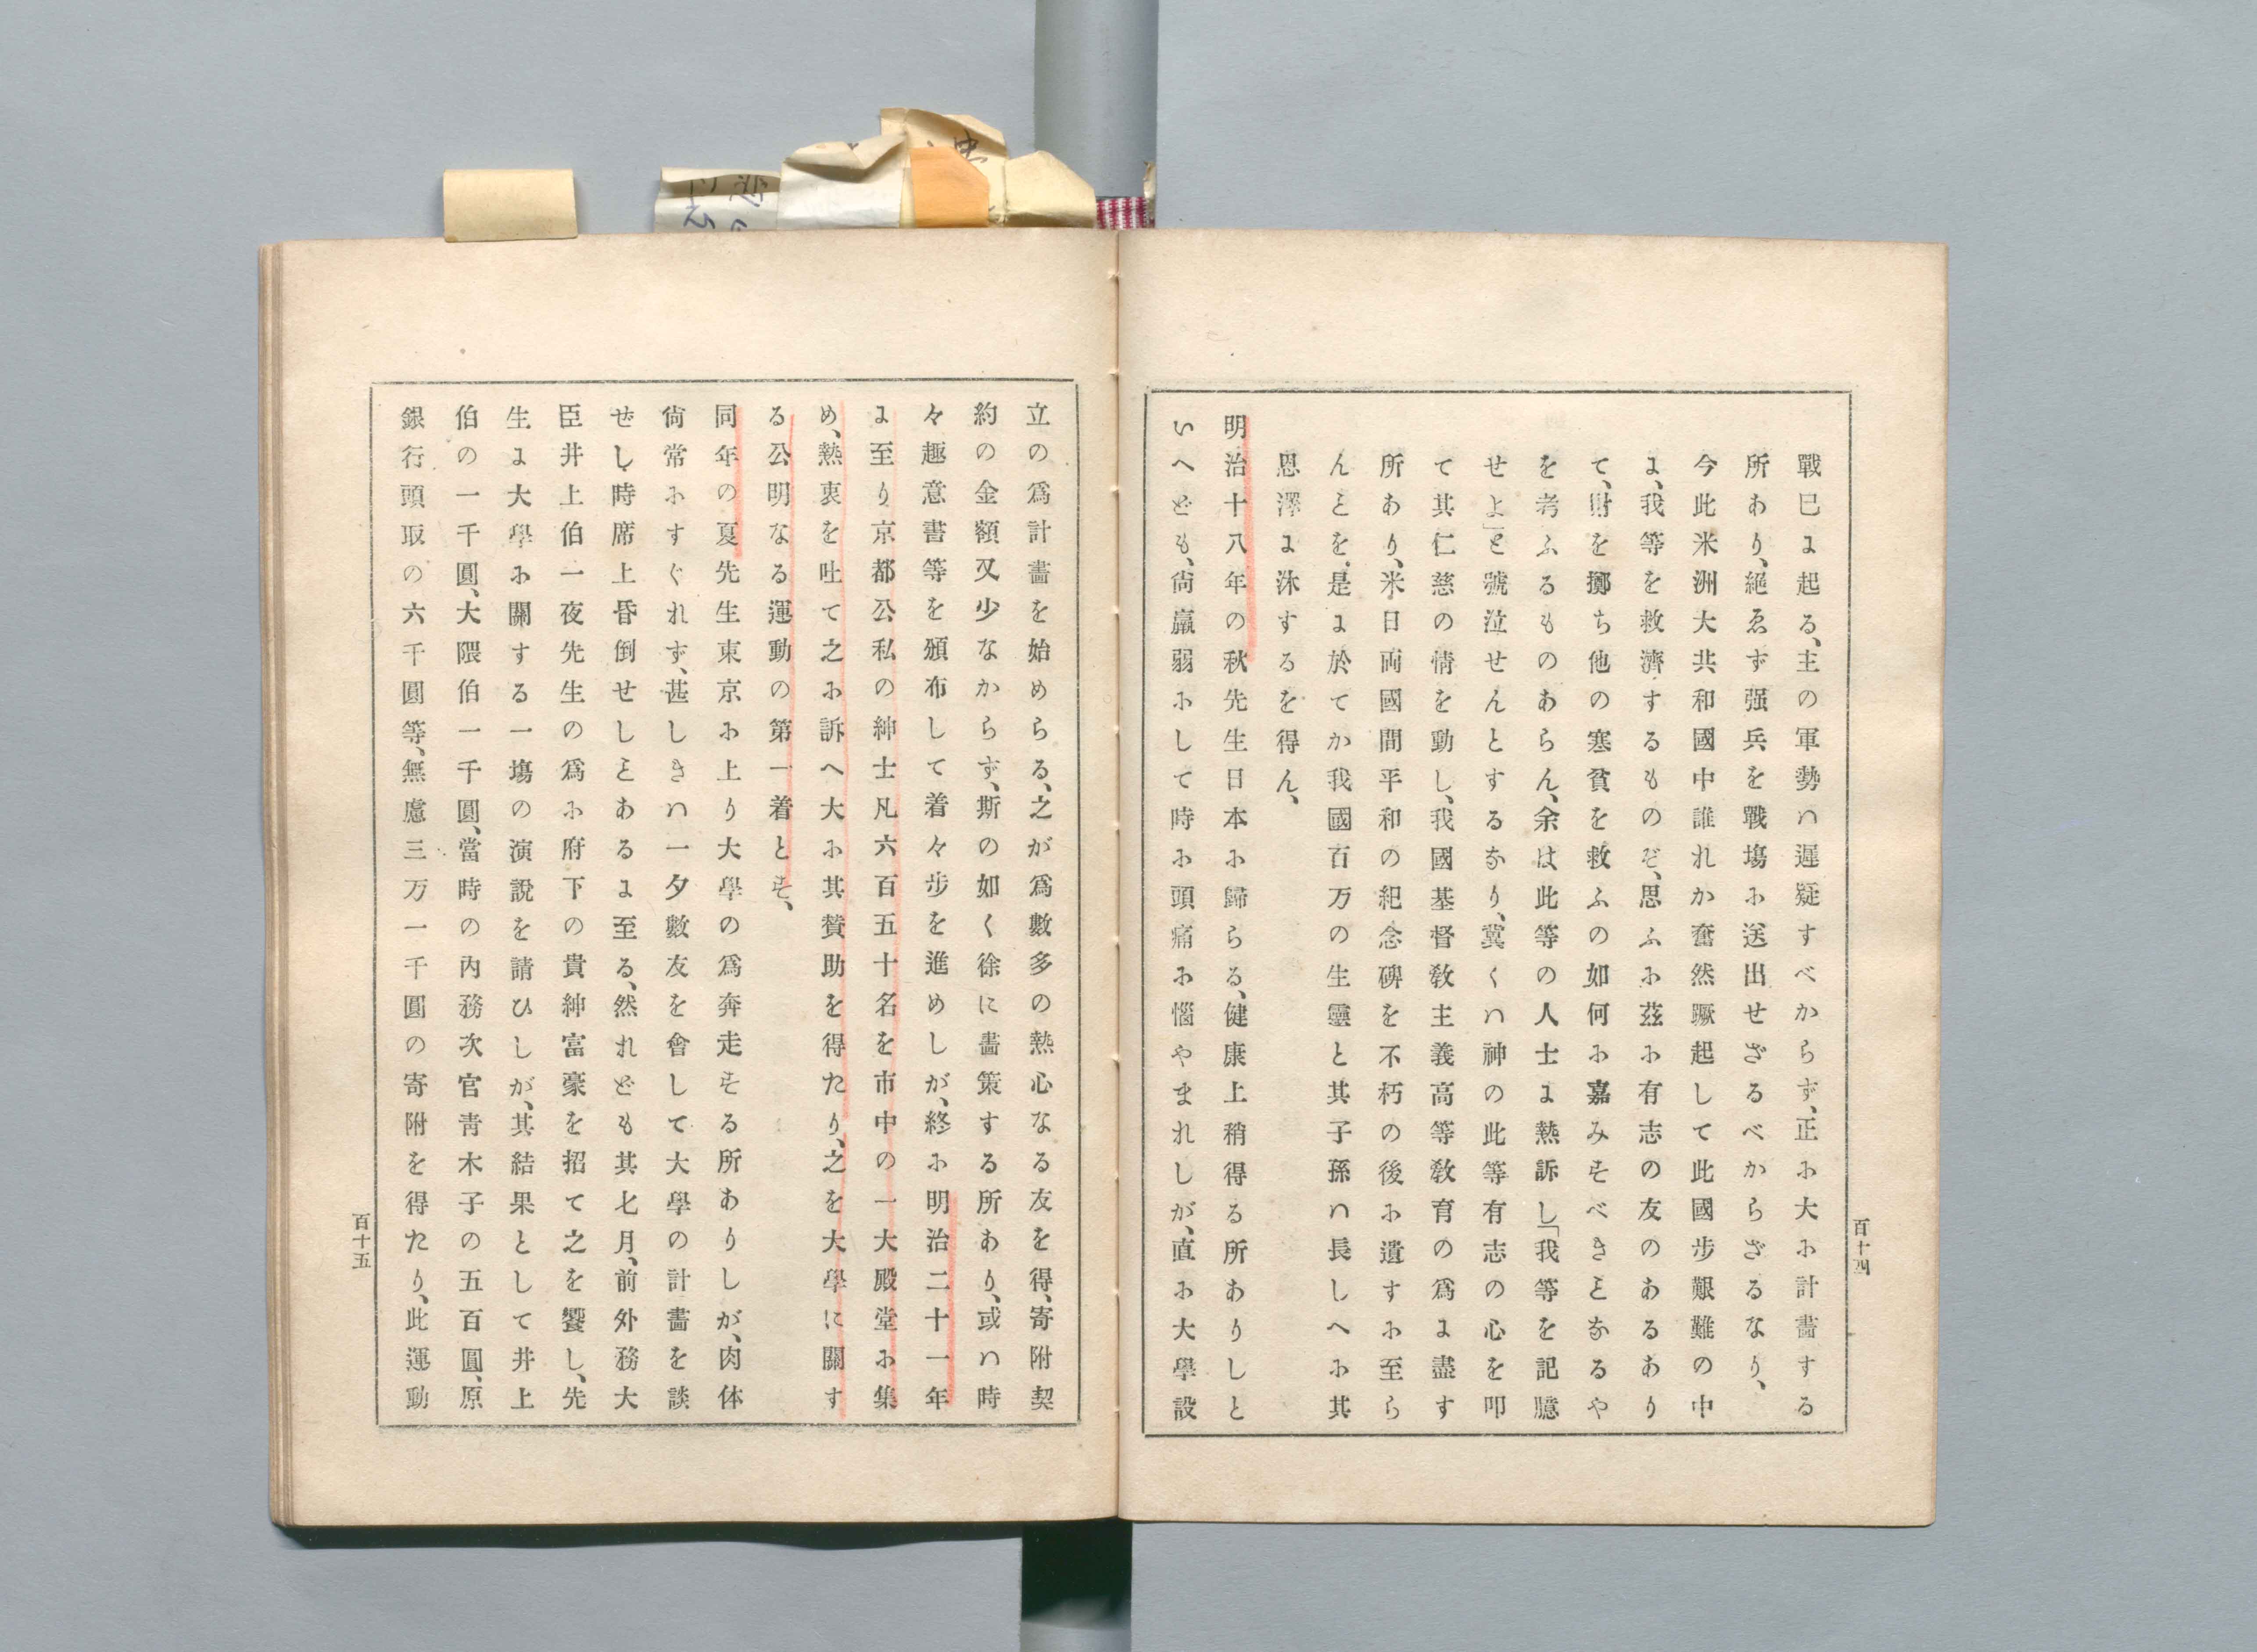 戰已に起る、主の軍勢ハ遲疑すべからず、正に大に計畵する
所あり、絕ゑず强兵を戰塲に送出せざるべからざるなり、
今此米洲大共和國中誰れか奮然蹶起して此國步艱難の中
に、我等を救濟するものぞ、思ふに茲に有志の友のあるあり
て、財を擲ち他の寒貧を救ふの如何に嘉みすべきヿなるや
を考ふるものあらん、余は此等の人士に熱訴し「我等を記臆
せよ」と號泣せんとするなり、冀くハ神の此等有志の心を叩
て其仁慈の情を動し、我國基督敎主義高等敎育の爲に盡す
所あり、米日両國間平和の紀念碑を不朽の後に遺すに至ら
んヿを、是に於てか我國百万の生靈と其子孫ハ長しへに其
恩澤に沐するを得ん、
明治十八年の秋先生日本に歸らる、健康上稍得る所ありしと
いへども、尙羸弱にして時に頭痛に惱やまれしが、直に大學設
百十四
立の爲計畵を始めらる、之が爲數多の熱心なる友を得、寄附契
約の金額又少なからず、斯の如く徐に畵策する所あり、或ハ時
々趣意書等を頒布して着々步を進めしが、終に明治二十一年
に至り京都公私の紳士凡六百五十名を市中の一大殿堂に集
め、熱衷を吐て之に訴へ大に其賛助を得たり、之を大學に關す
る公明なる運動の第一着とす、
同年の夏先生東京に上り大學の爲奔走する所ありしが、肉体
尙常にすぐれず、甚しきハ一夕數友を會して大學の計畵を談
ぜし時席上昏倒せしヿあるに至る、然れども其七月、前外務大
臣井上伯一夜先生の爲に府下の貴紳富豪を招て之を饗し、先
生に大學に關する一塲の演說を請ひしが、其結果として井上
伯の一千圓、大隈伯一千圓、當時の內務次官靑木子の五百圓、原
銀行頭取の六千圓等、無慮三万一千圓の寄附を得たり、此運動
百十五